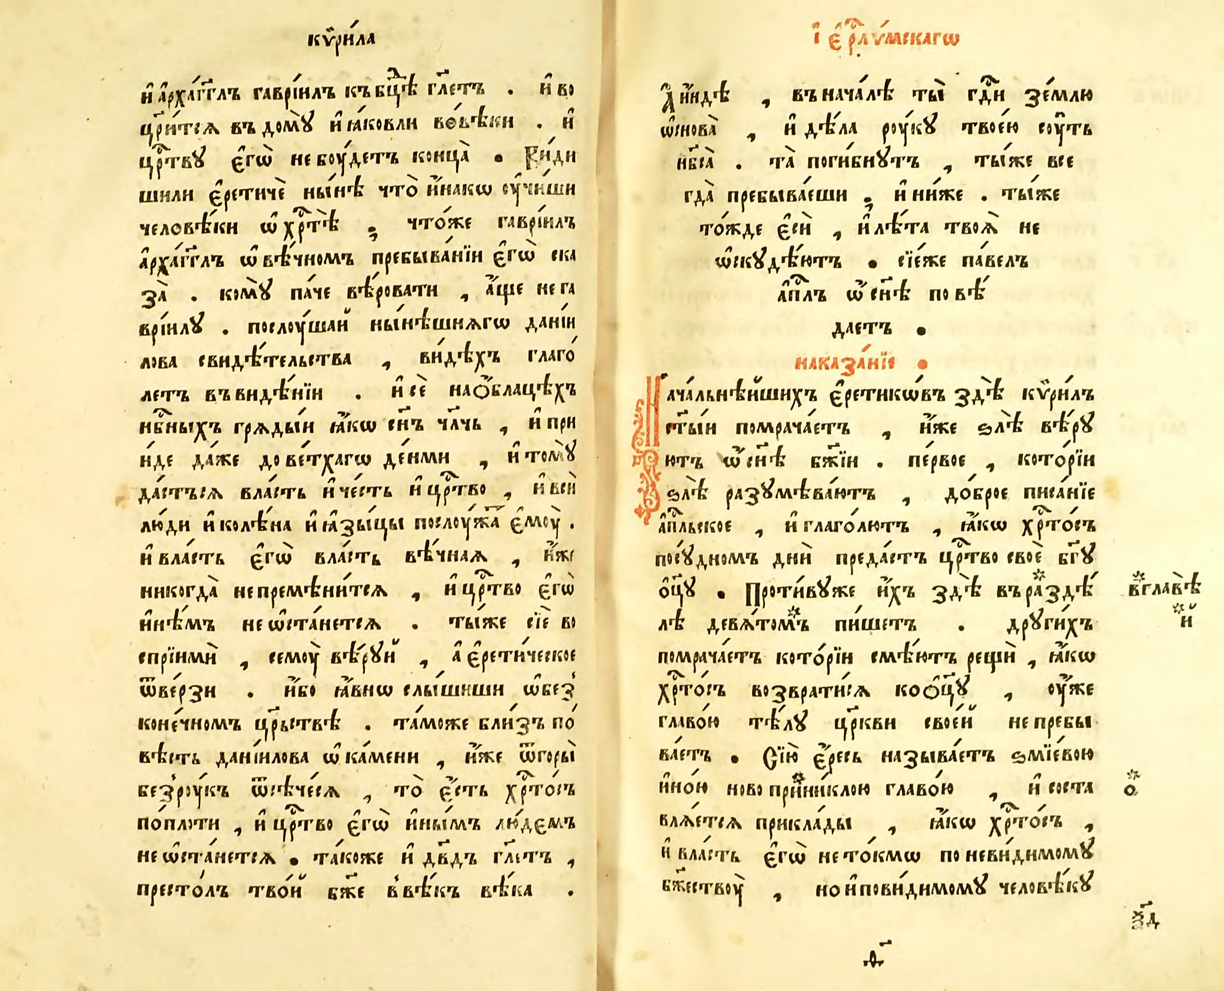 кѷри́ла
и҆ а҆рха́гг҃лъ гаврїи́лъ къ бц҃ѣ гл҃етъ . и҆ во
цр҃и́тсѧ въ домꙋ̀ и҆ꙗ҆́ковли во вѣ́ки . и҆
цр҃твꙋ є҆гѡ̀ не бꙋ́детъ конца̀ • Ви́ди
шили є҆рети́че ны́нѣ что̀ и҆́накѡ ᲂу҆чи́ши
человѣ́ки ѡ҆ хрⷭ҇тѣ̀ , что́же гаврїи́лъ
а҆рха́гг҃лъ ѡ҆ вѣ́чномъ пребыва́нїи є҆гѡ̀ ска
за̀ . комꙋ̀ па́че вѣ́ровати , а҆́ще не га
врїи́лꙋ . послꙋ́шай ны́нѣшнѧгѡ данїи
лова свидѣ́тельства , ви́дѣхъ глаго́
летъ въ видѣ́нїи . и҆ сѐ на ѻ҆́блацѣхъ
нбⷭ҇ныхъ грѧды́и ꙗ҆́кѡ сн҃ъ чл҃чь , и҆ прі
и́де да́же до ве́тхагѡ де́нми , и҆ томꙋ̀
да́стъсѧ вла́сть и҆ че́сть и҆ цр҃тво , и҆ вси̑
лю́ди и҆ колѣ́на и҆ ꙗ҆зы́цы послꙋ́жа̑ є҆мꙋ̀ .
и҆ вла́сть є҆гѡ̀ вла́сть вѣ́чнаѧ , и҆́же
никогда̀ не премѣни́тсѧ , и҆ цр҃тво є҆гѡ̀
и҆нѣ́мъ не ѡ҆ста́нетсѧ . ты́же сїѐ во
спрїимѝ , семꙋ̀ вѣ́рꙋй , а҆ є҆рети́ческое
ѿве́рзи . и҆́бо ꙗ҆́внѡ слы́шиши ѡ҆ без̾
коне́чномъ црⷭ҇твѣ . та́може бли́зъ по́
вѣсть данїи́лова ѡ҆ ка́мени , и҆́же ѿ горы̀
без̾ рꙋ́къ ѿсѣ́чесѧ , то̀ є҆́сть хрⷭ҇то́съ
по пло́ти , и҆ цр҃тво є҆гѡ̀ и҆ны́мъ лю́демъ
не ѡ҆ста́нетсѧ • та́коже и҆ дв҃дъ гл҃етъ ,
престо́лъ тво́й бж҃е в̾ вѣ́къ вѣ́ка .
і҆є҆рⷭ҇лꙋ́мскагѡ
А҆ и҆́ндѣ , въ нача́лѣ ты̀ гдⷭ҇и зе́млю
ѡ҆снова̀ , и҆ дѣ́ла рꙋ́кꙋ твое́ю сꙋ́ть
нб҃са̀ . та̀ поги́бнꙋтъ , ты́же все
гда̀ пребыва́еши , и҆ ни́же . ты́же
то́жде є҆сѝ , и҆ лѣ́та твоѧ̑ не
ѡ҆скꙋдѣ́ютъ • сїе́же па́велъ
а҆пⷭ҇лъ ѡ҆ сн҃ѣ повѣ́
даетъ •
наказа́нїе •
Нача́льнѣйшихъ є҆ретикѡ́въ здѣ̀ кѷри́лъ
ст҃ы́и помрача́етъ , и҆́же ѕлѣ̀ вѣ́рꙋ
ютъ ѡ҆ сн҃ѣ бж҃їи . пе́рвое , кото́рїи
ѕлѣ̀ разꙋмѣва́ютъ , до́брое писа́нїе
а҆пⷭ҇льское , и҆ глаго́лютъ , ꙗ҆́кѡ хрⷭ҇то́съ
посꙋ́дномъ днѝ преда́стъ цр҃тво своѐ бг҃ꙋ
ѻ҆ц҃ꙋ̀ • Проти́вꙋже и҆́хъ здѣ̀ въ раздѣ́
лѣ девѧ́томъ пи́шетъ . дрꙋги́хъ
помрача́етъ кото́рїи смѣ́ютъ рещѝ , ꙗ҆́кѡ
хрⷭ҇то́съ возврати́сѧ ко ѻ҆ц҃ꙋ̀ , ᲂу҆́же
главо́ю тѣ́лꙋ цр҃кви свое́й не пребы
ва́етъ • Сїю̀ є҆́ресь называ́етъ ѕмїе́вою
и҆но́ю ново прини́клою главо́ю , и҆ соста
влѧ́етсѧ прикла́ды , ꙗ҆́кѡ хрⷭ҇то́съ ,
и҆ вла́сть є҆гѡ̀ не то́кмѡ по неви́димомꙋ
бж҃ествꙋ̀ , но и҆ по ви́димомꙋ человѣ́кꙋ
в̾ главѣ̀
и҃
о҃
з҃д
д҃